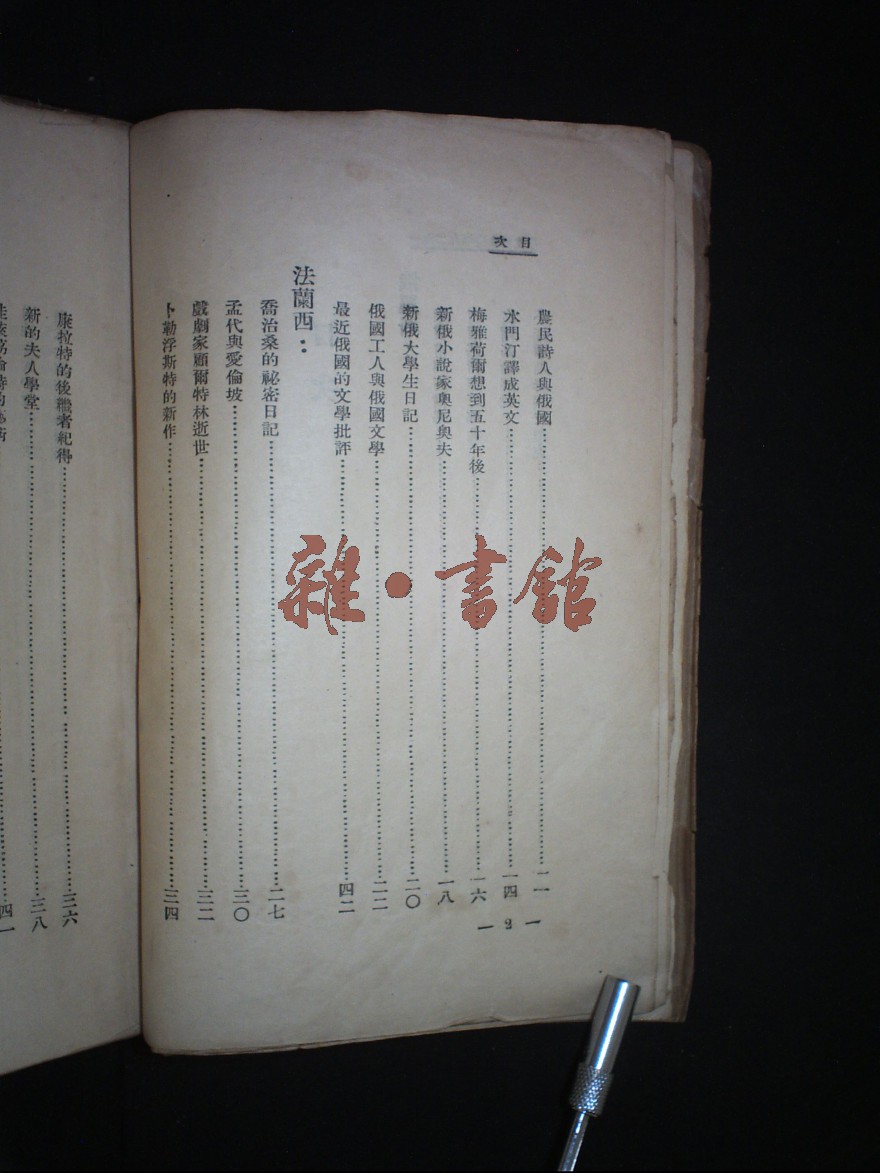 目次
農民詩人與俄國……一一
水門汀譯成英文……一四
梅雅荷爾想到五十年後……一六
新俄小說家奧尼奧夫……一八
新俄大學生日記……二〇
俄國工人與俄國文學……二二
最近俄國的文學批評……四二
法蘭西：
喬治桑的祕密日記……二七
孟代與愛倫坡……三〇
戲劇家顧爾特林逝世……三二
卜勒浮斯特的新作……三四
一 2 一
康拉特的後繼者紀得……三六
新的夫人學堂……三八
四一
雜·書館